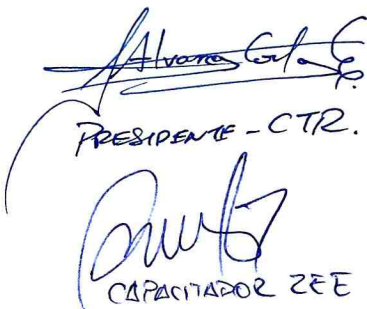 Alvaro
PRESIDENTE - CTR.
CAPACITADOR ZEE